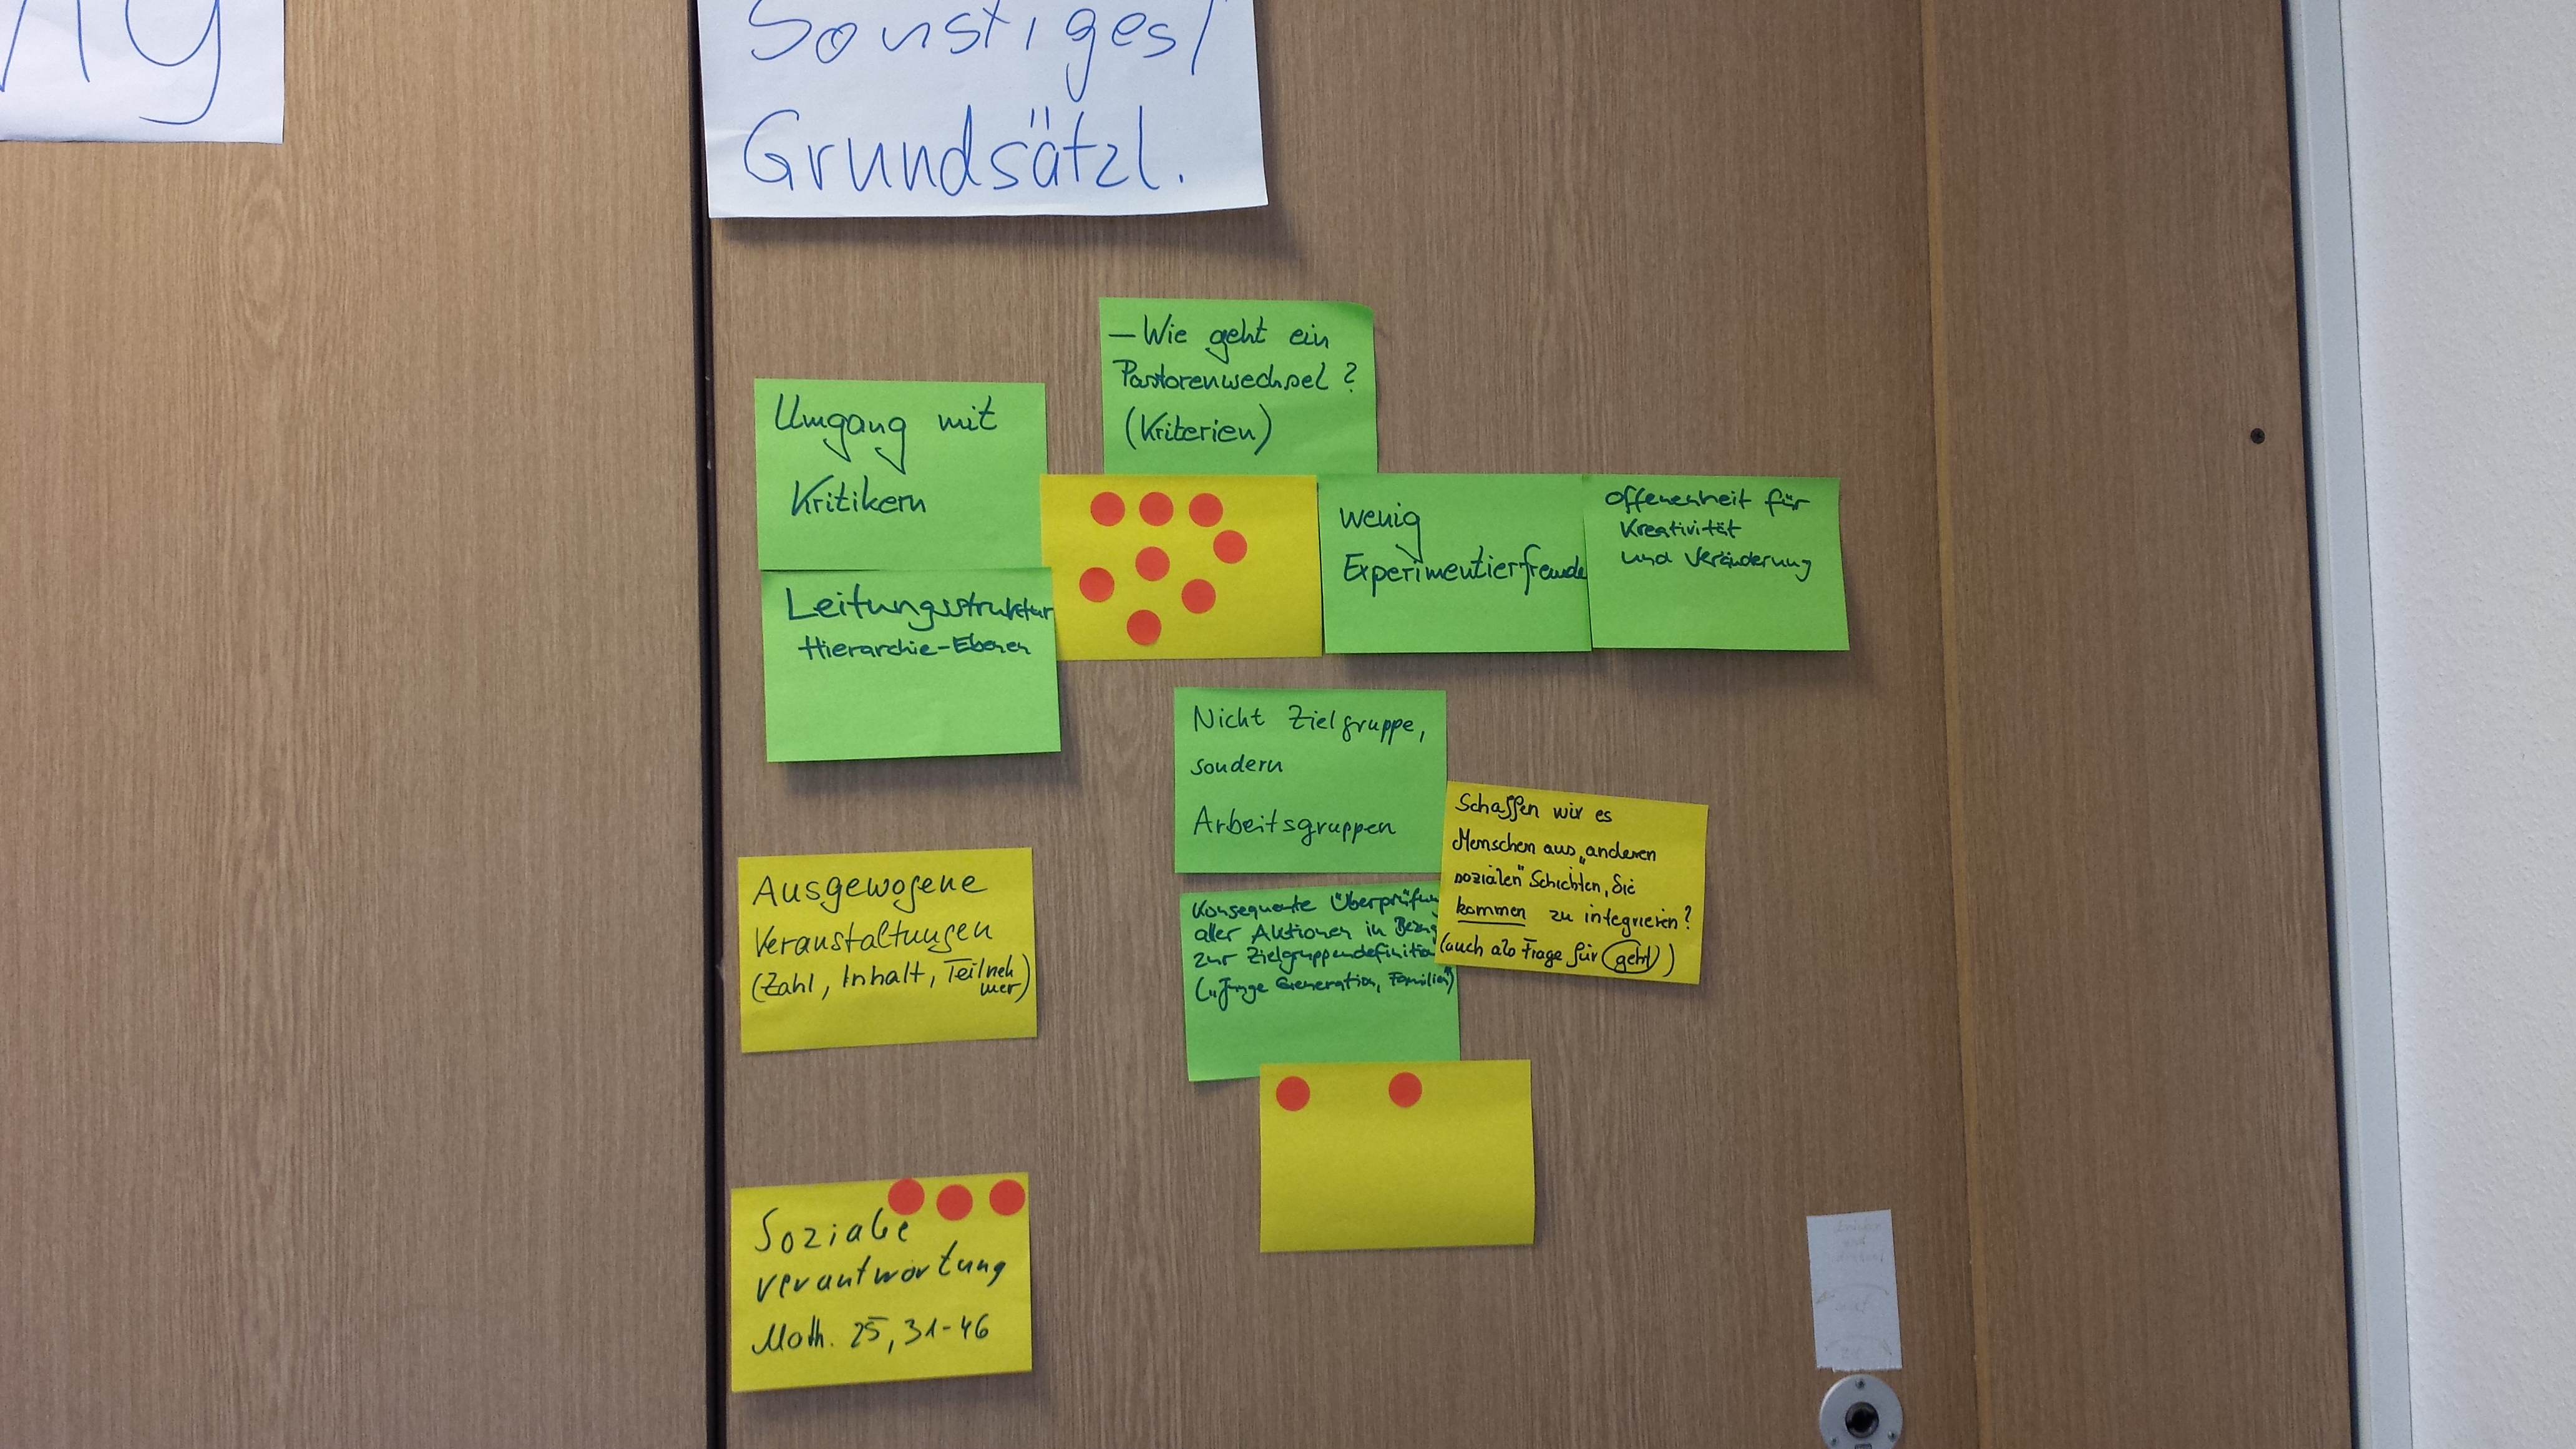 ng
Sonstiges/
Grundsätzl.
– Wie geht ein
Pastorenwechsel?
(Kriterien)
Umgang mit
Kritikern
Leitungsstruktur
Hierarchie-Ebenen
wenig
Experimentierfreude
Offenenheit für
Kreativität
und Veränderung
Nicht Zielgruppe,
sondern
Arbeitsgruppen
Schaffen wir es
Menschen aus „anderen
sozialen" Schichten, die
kommen zu integrieren?
(auch als Frage für geht)
Konsequente Überprüfung
aller Aktionen in Bezug
zur Zielgruppendefinition
("Junge Generation, Familien")
Ausgewogene
Veranstaltungen
(Zahl, Inhalt, Teilneh
mer)
Soziale
Verantwortung
Math. 25, 31-46